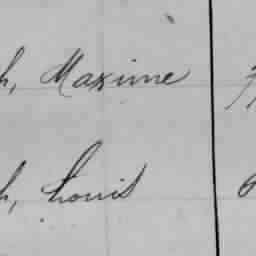 h, Maxime
h, Louis